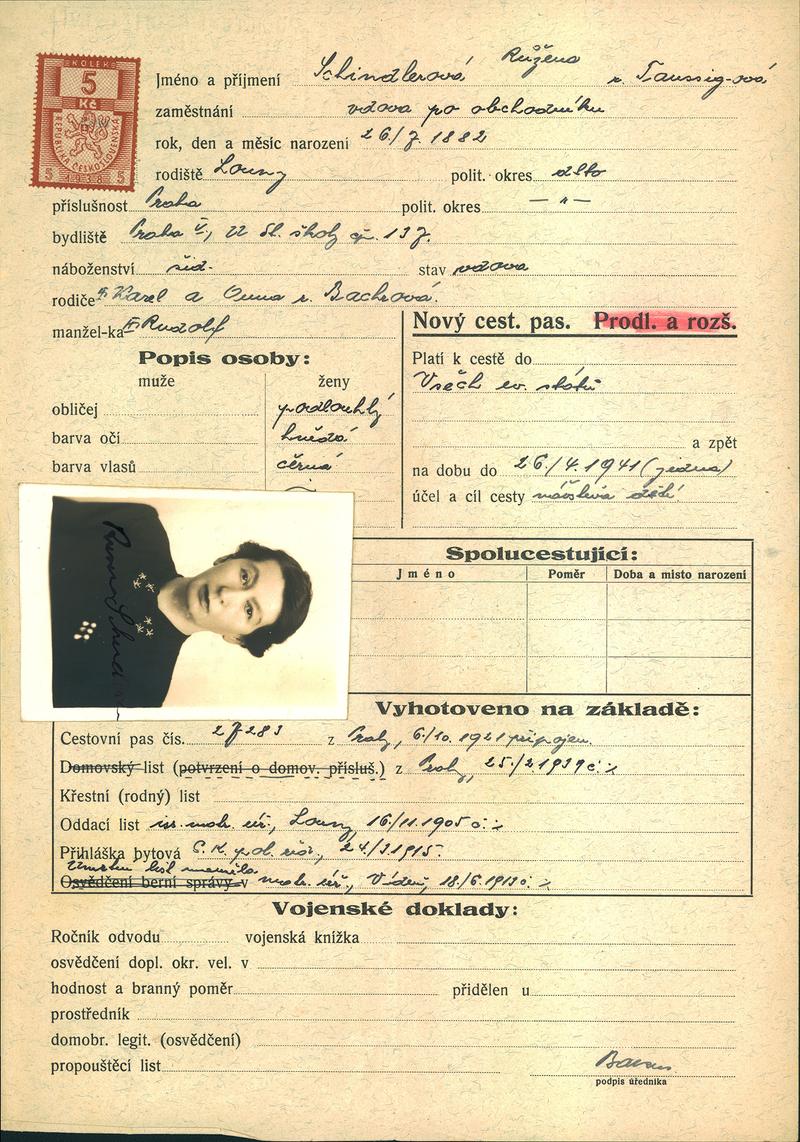 KOLEK
5
Kč
REPUBLIKA ČESKOSLOVENSKÁ
5 1938 5
Jméno a příjmení Schindlerová Růžena r. Taussig-ová
zaměstnání vdova po obchodníku
rok, den a měsíc narození 26./7. 1882
rodiště Louny polit. okres dtto
příslušnost Praha polit. okres — " —
bydliště Praha V., U St. školy čp. 137.
náboženství žid. stav vdova
rodiče Karel a Anna r. Bachrová.
manžel-ka Rudolf
Nový cest. pas. Prodl. a rozš.
Popis osoby:
muže ženy
obličej podlouhlý
barva očí hnědá
barva vlasů černá
Platí k cestě do
Všech ev. států
a zpět
na dobu do 26./4. 1941 (jedna)
účel a cíl cesty návštěva dětí
Spolucestující:
Jméno Poměr Doba a místo narození
Vyhotoveno na základě:
Cestovní pas čís. 27283 z Prahy, 6/10. 1921 připojen.
Domovský list (potvrzení o domov. přísluš.) z Prahy, 25./2 1939 č.
Křestní (rodný) list
Oddací list isr. matr. úř., Louny, 16/11. 1905 č.
Přihláška bytová C. K. pol. řed., 24/3 1915.
Úmrtní list manžela
Osvědčení berní správy v matr. úř., Vídeň, 18./6. 1913 č.
Vojenské doklady:
Ročník odvodu vojenská knížka
osvědčení dopl. okr. vel. v
hodnost a branný poměr přidělen u
prostředník
domobr. legit. (osvědčení)
propouštěcí list
podpis úředníka